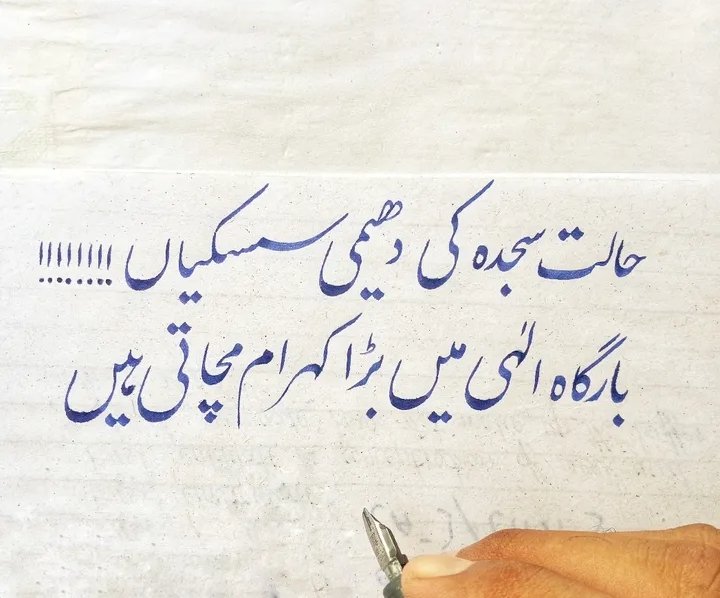 حالت سجدہ کی دھیمی سسکیاں !!!!!!!!!
بارگاہ الٰہی میں بڑا کہرام مچاتی ہیں